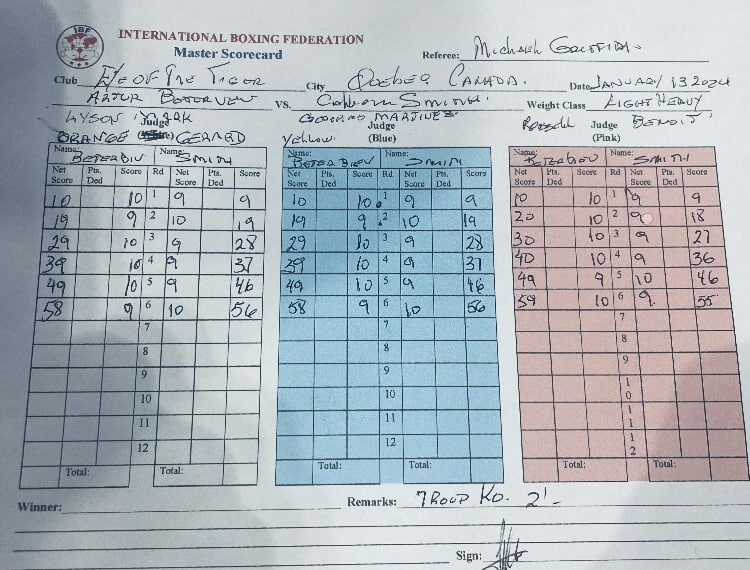 IBF
INTERNATIONAL BOXING FEDERATION
Master Scorecard
Referee: Michael GRIFFIN
Club EYE OF THE TIGER City QUEBEC CANADA. Date JANUARY 13 2024
ARTUR BETERBIEV VS. CALLUM SMITH Weight Class LIGHT HEAVY
Judge Judge Judge BENOIT
ORANGE GERARD Yellow (Blue) (Pink)
Name: BETERBIEV Name: SMITH Name: BETERBIEV Name: SMITH Name: BETERBIEV Name: SMITH
Net Score Pts. Ded Score Rd Net Score Pts. Ded Score Net Score Pts. Ded Score Rd Net Score Pts. Ded Score Net Score Pts. Ded Score Rd Net Score Pts. Ded Score
10 10 1 9 9 10 10 1 9 9 10 10 1 9 9
19 9 2 10 19 19 9 2 10 19 20 10 2 9 18
29 10 3 9 28 29 10 3 9 28 30 10 3 9 27
39 10 4 9 37 39 10 4 9 37 40 10 4 9 36
49 10 5 9 46 49 10 5 9 46 49 9 5 10 46
58 9 6 10 56 58 9 6 10 56 59 10 6 9 55
7 7 7
8 8 8
9 9 9
10 10 10
11 11 11
12 12 12
Total: Total: Total: Total: Total: Total:
Winner: Remarks: 7 ROUD KO. 2'-
Sign: